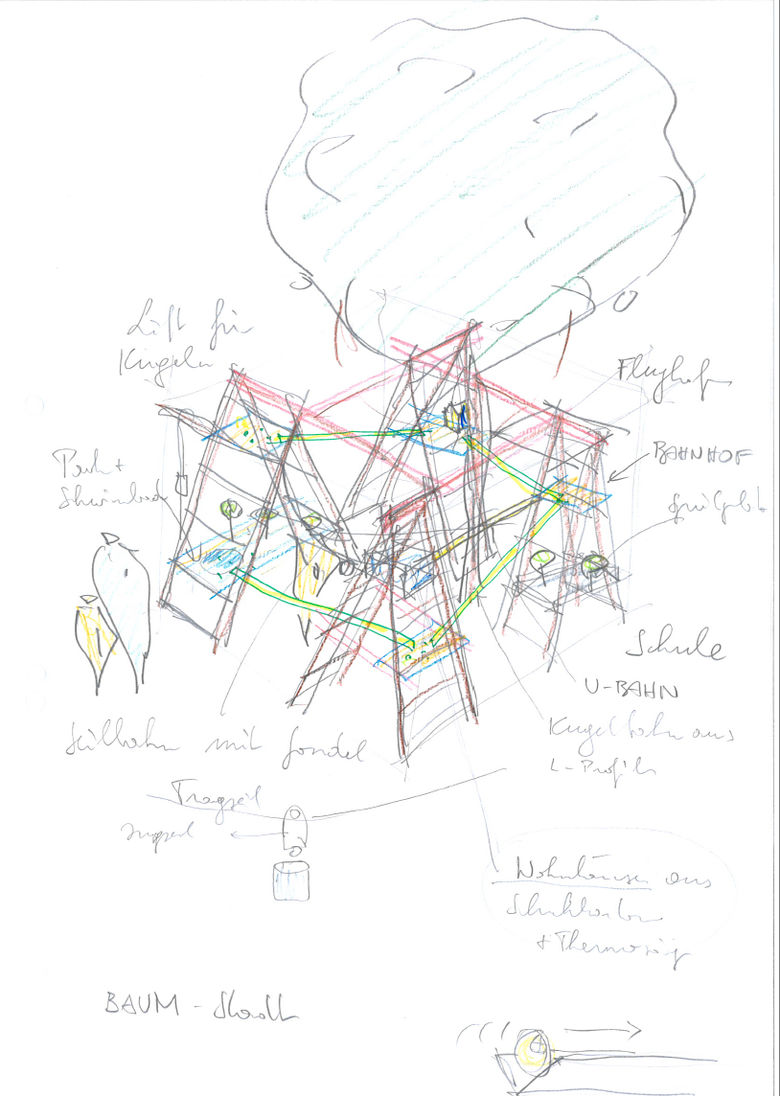 Lift für
Kugeln
Flughafen
BAHNHOF
Park +
Schwimmbad
Schule
U-BAHN
Seilbahn mit Gondel
Kugelbahn aus
L-Profil
Tragseil
Zugseil
Wohnhäuser aus
+ Thermosäg
BAUM - Stadt